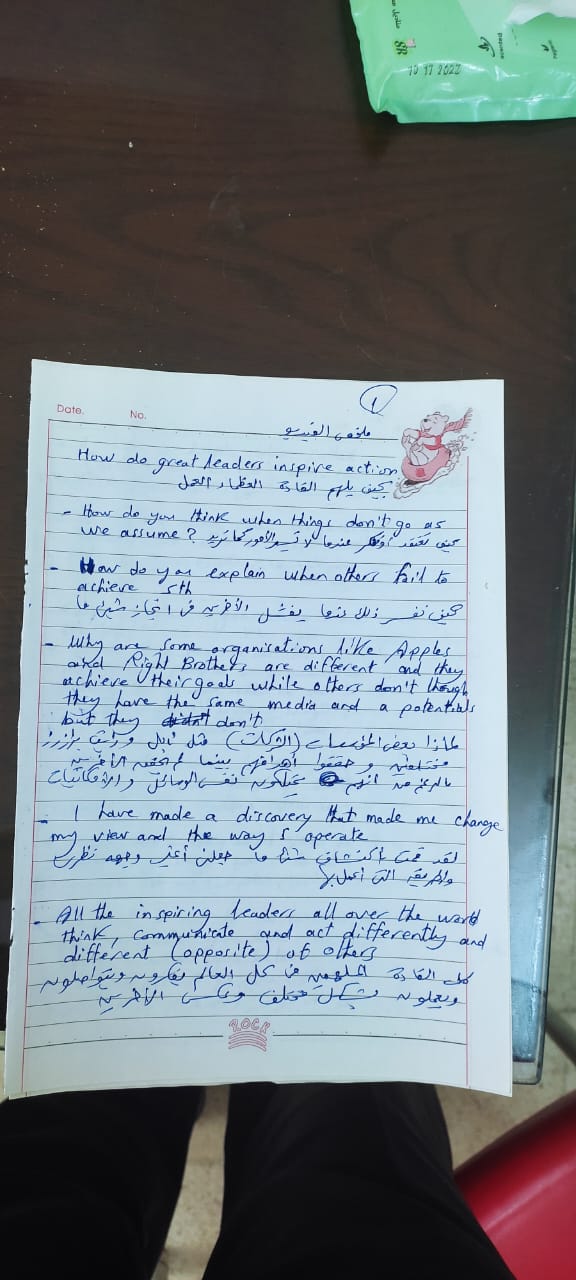 10 17 2022
scented
1
Date.
No.
ملخص الفيديو
How do great leaders inspire action
كيف يلهم القادة العظماء العمل
- How do you think when things don't go as
we assume? كيف تعتقد أو تفكر عندما لا تسير الأمور كما تريد
- How do you explain when others fail to
achieve sth
كيف تفسر ذلك عندما يفشل الآخرين في انجاز شيئ ما
- Why are some organisations like Apples
and Right Brothers are different and they
achieve their goals while others don't though
they have the same media and a potentials
but they don't
لماذا بعض المؤسسات (الشركات) مثل أبل و رايت برازرز
مختلفين و حققوا أهدافهم بينما لم يحققه الآخرين
بالرغم من أنهم يمتلكون نفس الوسائل والإمكانيات
- I have made a discovery that made me change
my view and the way I operate
لقد قمت باكتشاف شيئا ما جعلني أغير وجهه نظري
والطريقه التي أعمل بها
- All the inspiring leaders all over the world
think, communicate and act differently and
different (opposite) of others
كل القادة الملهمين في كل العالم يفكرون ويتواصلون
ويعملون بشكل مختلف وعكس الآخرين
ROCK